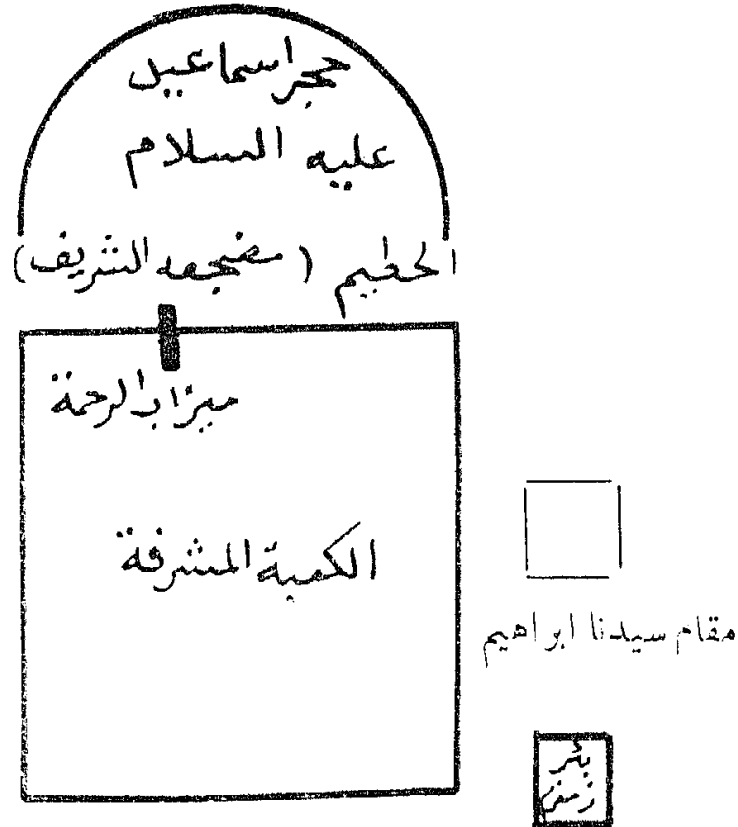 حجر اسماعيل
عليه السلام
الحطيم (مضجعه الشريف)
ميزاب الرحمة
الكعبة المشرفة
مقام سيدنا ابراهيم
بئر
زمزم